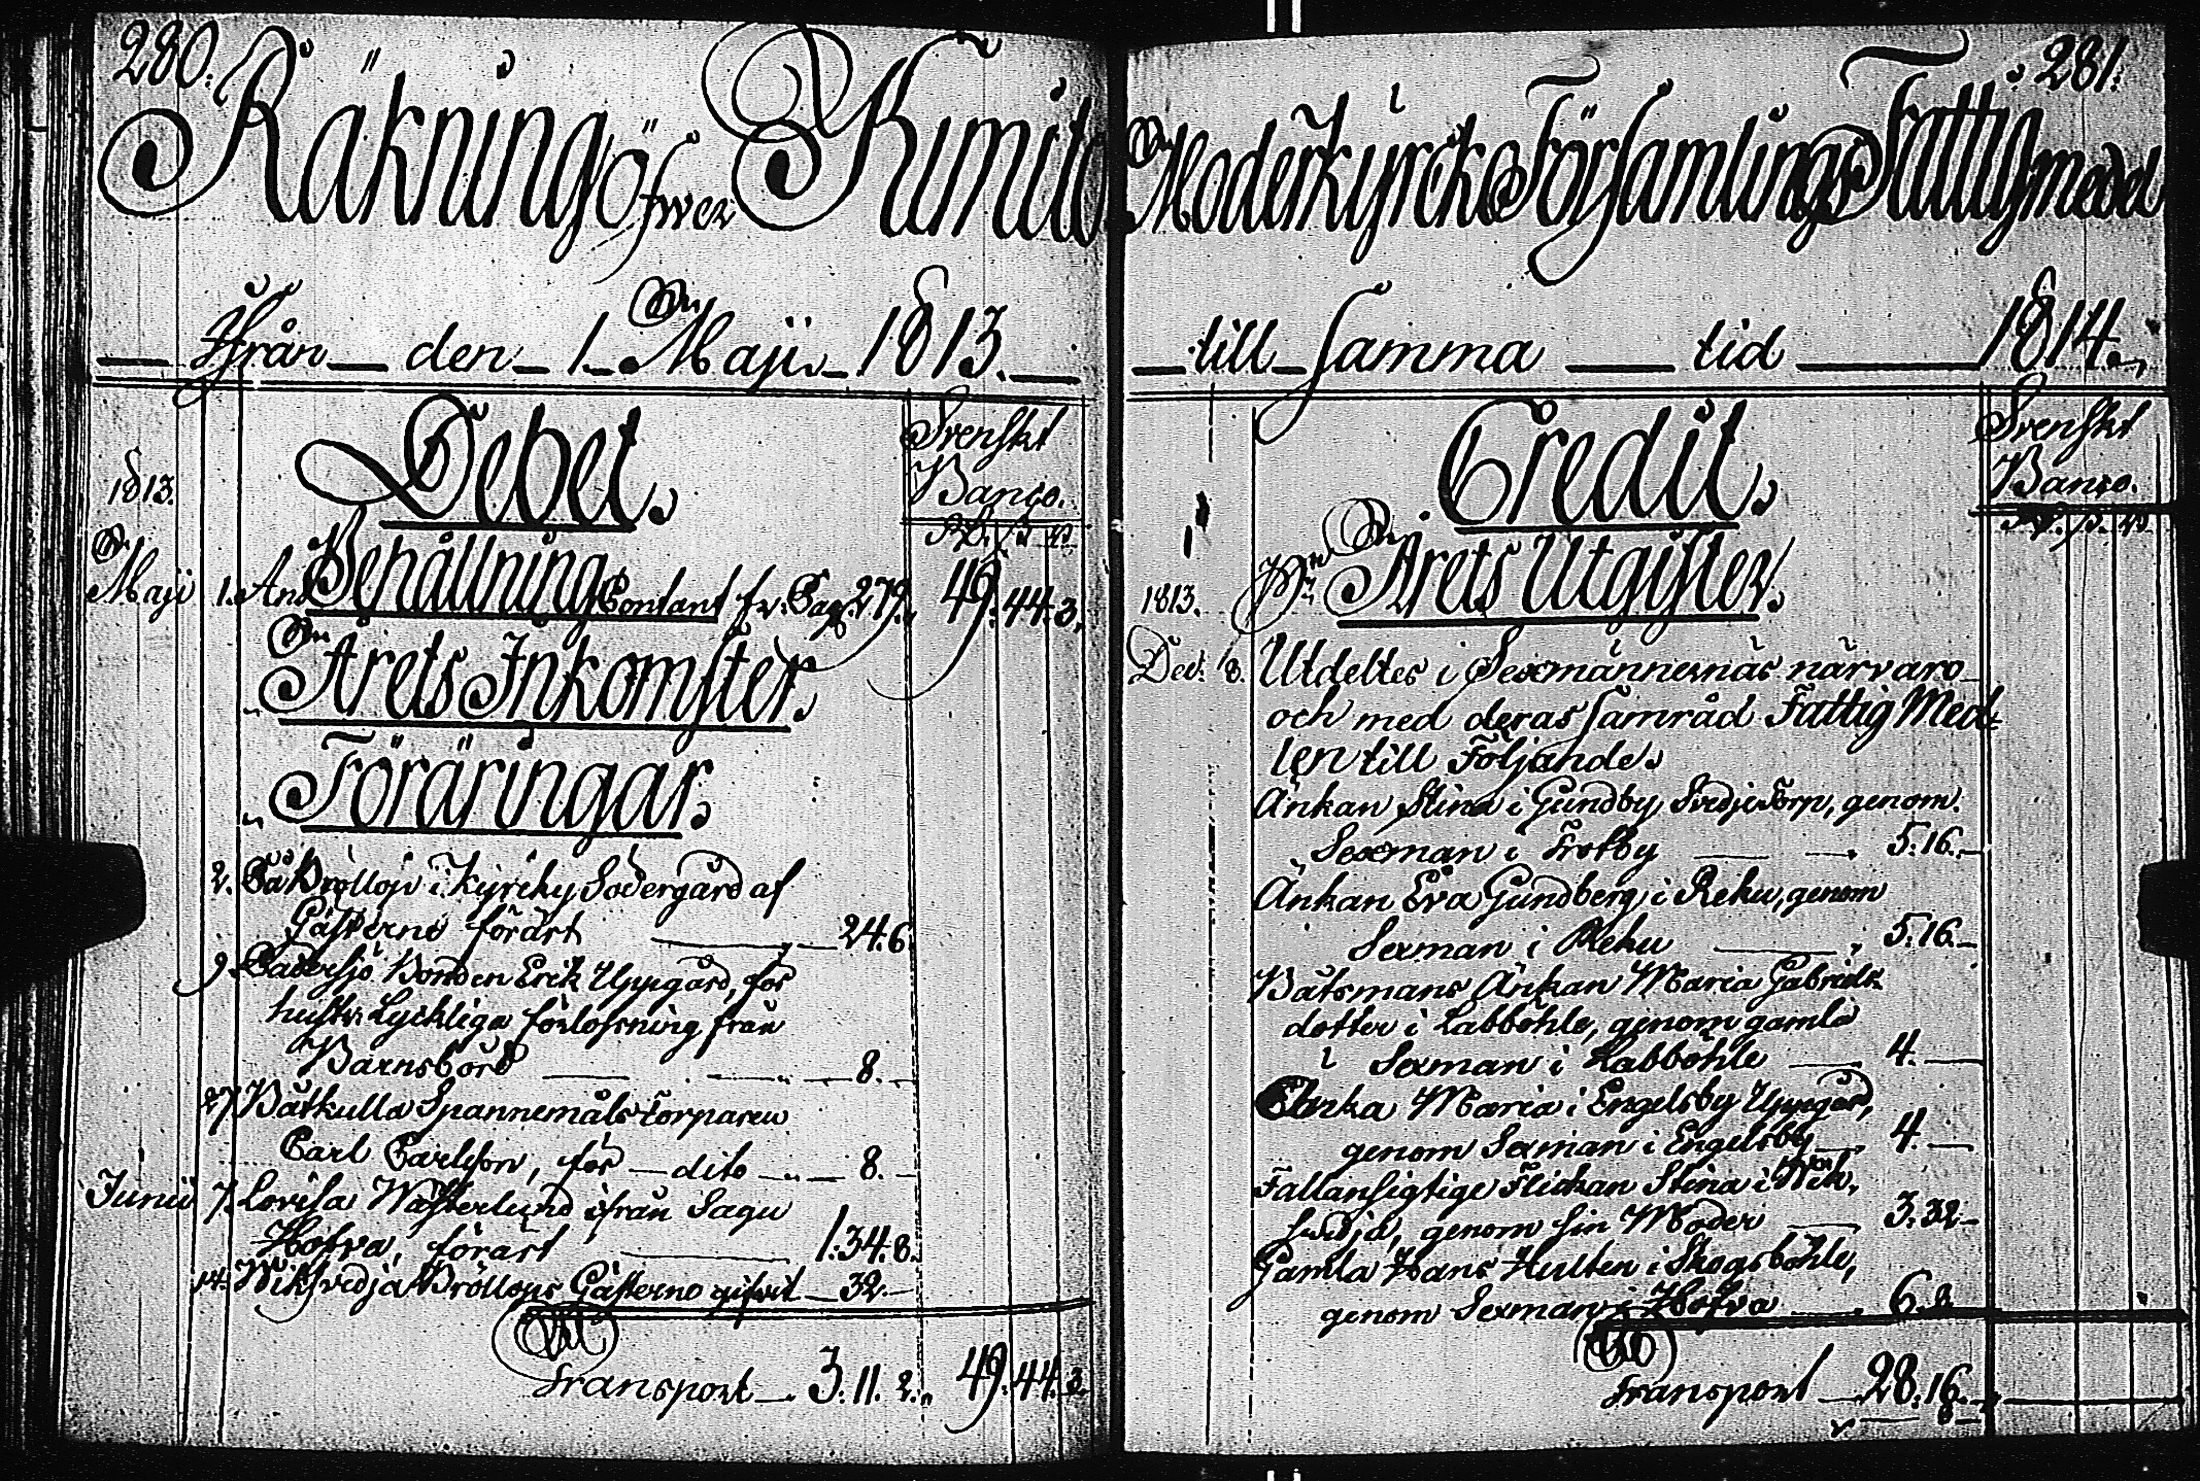 280.
Räkning Öfwer Kimito
Ifrån den 1. Maji 1813.
Debet.
Svenskt
Banco.
1813.
Maji 1. An Behållning Contant fr. Pag. 279. 49. 44. 3.
Årets Inkomster.
Föräringar.
2. På Bröllop i Kyrkby Södergård af
Gästerne förärt 24. 6.
9. Bonden Erik Uppgård, för
hustr. Lyckliga förlossning från
Barnsbörd 8.
27. Båtkulla Spannemåls Torparen
Carl Carlsson, för dito 8.
Junii 7. Lovisa Wästerlund ifrån Sagu
Hofva, förärt 1. 34. 8.
14. Wiksvedja Bröllops Gästerne gifvit 32.
Transport 3. 11. 2. 49. 44. 3.
281.
Moderkyrcko Församlings Fattigmedel
till Samma tid 1814.
Credit.
Svenskt
Banco.
1813. Årets Utgifter.
Dec. 8. Utdeltes i Sexmännernas närvaro
och med deras samråd Fattig Med-
len till Följande.
Änkan Stina i Gundby Svedje Torp, genom
Sexman i Trotby 5. 16.
Änkan Eva Gundberg i Reku, genom
Sexman i Reku 5. 16.
Båtsmans Änkan Maria Gabriels
dotter i Labböhle, genom gamla
Sexman i Labböhle 4.
Enka Maria i Engelsby Uppgård,
genom Sexman i Engelsby 4.
Fallansigtige Flickan Stina i Wik-
svedja, genom sin Moder 3. 32.
Gamla Hans Hulten i Skogsböhle,
genom Sexman i Hofva 6. 8.
Transport 28. 16.